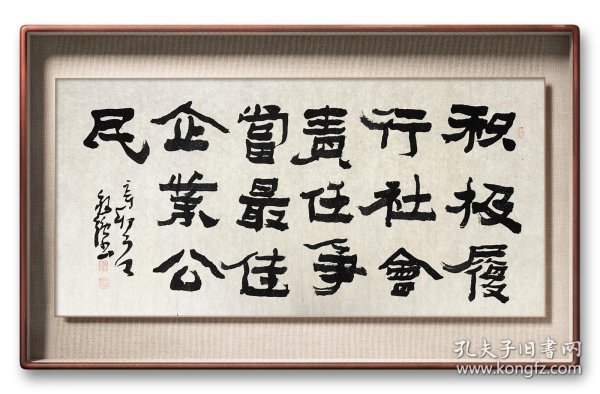 积极履
行社會
責任争
當最佳
企業公
民
孔夫子旧书网
www.kongfz.com